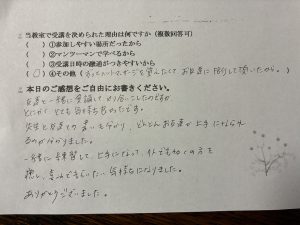 当教室で受講を決められた理由は何ですか(複数回答可)
( )①参加しやすい場所だったから
( )②マンツーマンで学べるから
( )③受講日時の融通がつきやすいから
(○)④その他(
本日のご感想をご自由にお書きください。
友達と一緒に受講して
とにかく とても気持ち良かったです。
先生と友達との違いも分かり、どんどん友達が上手になられ
るのが分かりました。
一緒に練習して、上手になって、
癒し、喜んでもらいたい気持ちになりました。
ありがとうございました。